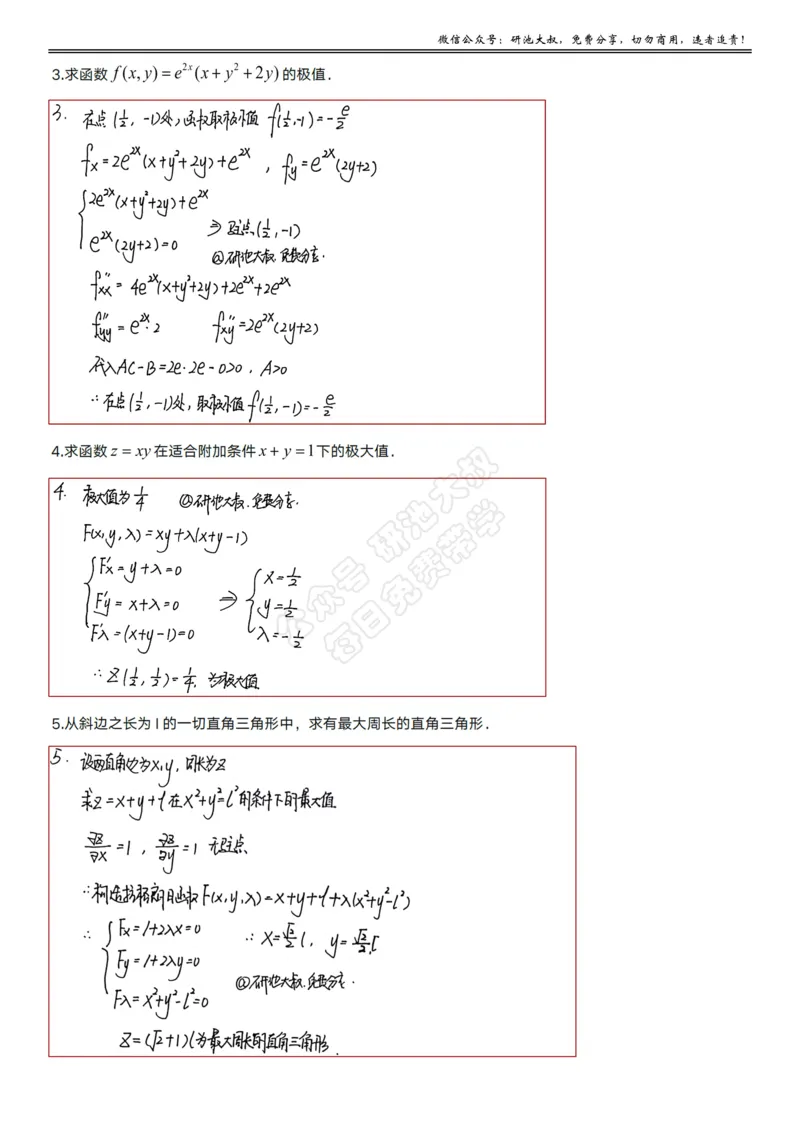 微信公众号：研池大叔，免费分享，切勿商用，违者追责！
3.求函数 f(x,y)=e^{2x}(x+y^2+2y)的极值.
3. 在点(½, -1)处，函数取极小值 f(½,-1)=-e/2
fx=2e^{2x}(x+y²+2y)+e^{2x} , fy=e^{2x}(2y+2)
{2e^{2x}(x+y²+2y)+e^{2x}
e^{2x}(2y+2)=0 ⇒ 驻点(½,-1)
@研池大叔.免费分享.
f''xx = 4e^{2x}(x+y²+2y)+2e^{2x}+2e^{2x}
f''yy = e^{2x}·2 f''xy=2e^{2x}(2y+2)
代入AC-B=2e·2e-0>0, A>0
∴在点(½,-1)处，取极小值f(½,-1)=-e/2
4.求函数z=xy在适合附加条件x+y=1下的极大值.
4. 极大值为¼ @研池大叔.免费分享.
F(x,y,λ)=xy+λ(x+y-1)
{F'x=y+λ=0
F'y=x+λ=0 ⇒ {x=½ y=½ λ=-½
F'λ=(x+y-1)=0
∴Z(½,½)=¼, 为极大值
公众号 研池大叔
每日免费带学
5.从斜边之长为 l 的一切直角三角形中，求有最大周长的直角三角形.
5. 设两直角边为x,y, 周长为z
求z=x+y+l在x²+y²=l²的条件下的最大值
∂z/∂x=1, ∂z/∂y=1 无驻点
∴构造拉格朗日函数F(x,y,λ)=x+y+l+λ(x²+y²-l²)
∴ {Fx=1+2λx=0 ∴ x=√2/2 l, y=√2/2 l
Fy=1+2λy=0
@研池大叔.免费分享.
Fλ=x²+y²-l²=0
z=(√2+1)l为最大周长的直角三角形.